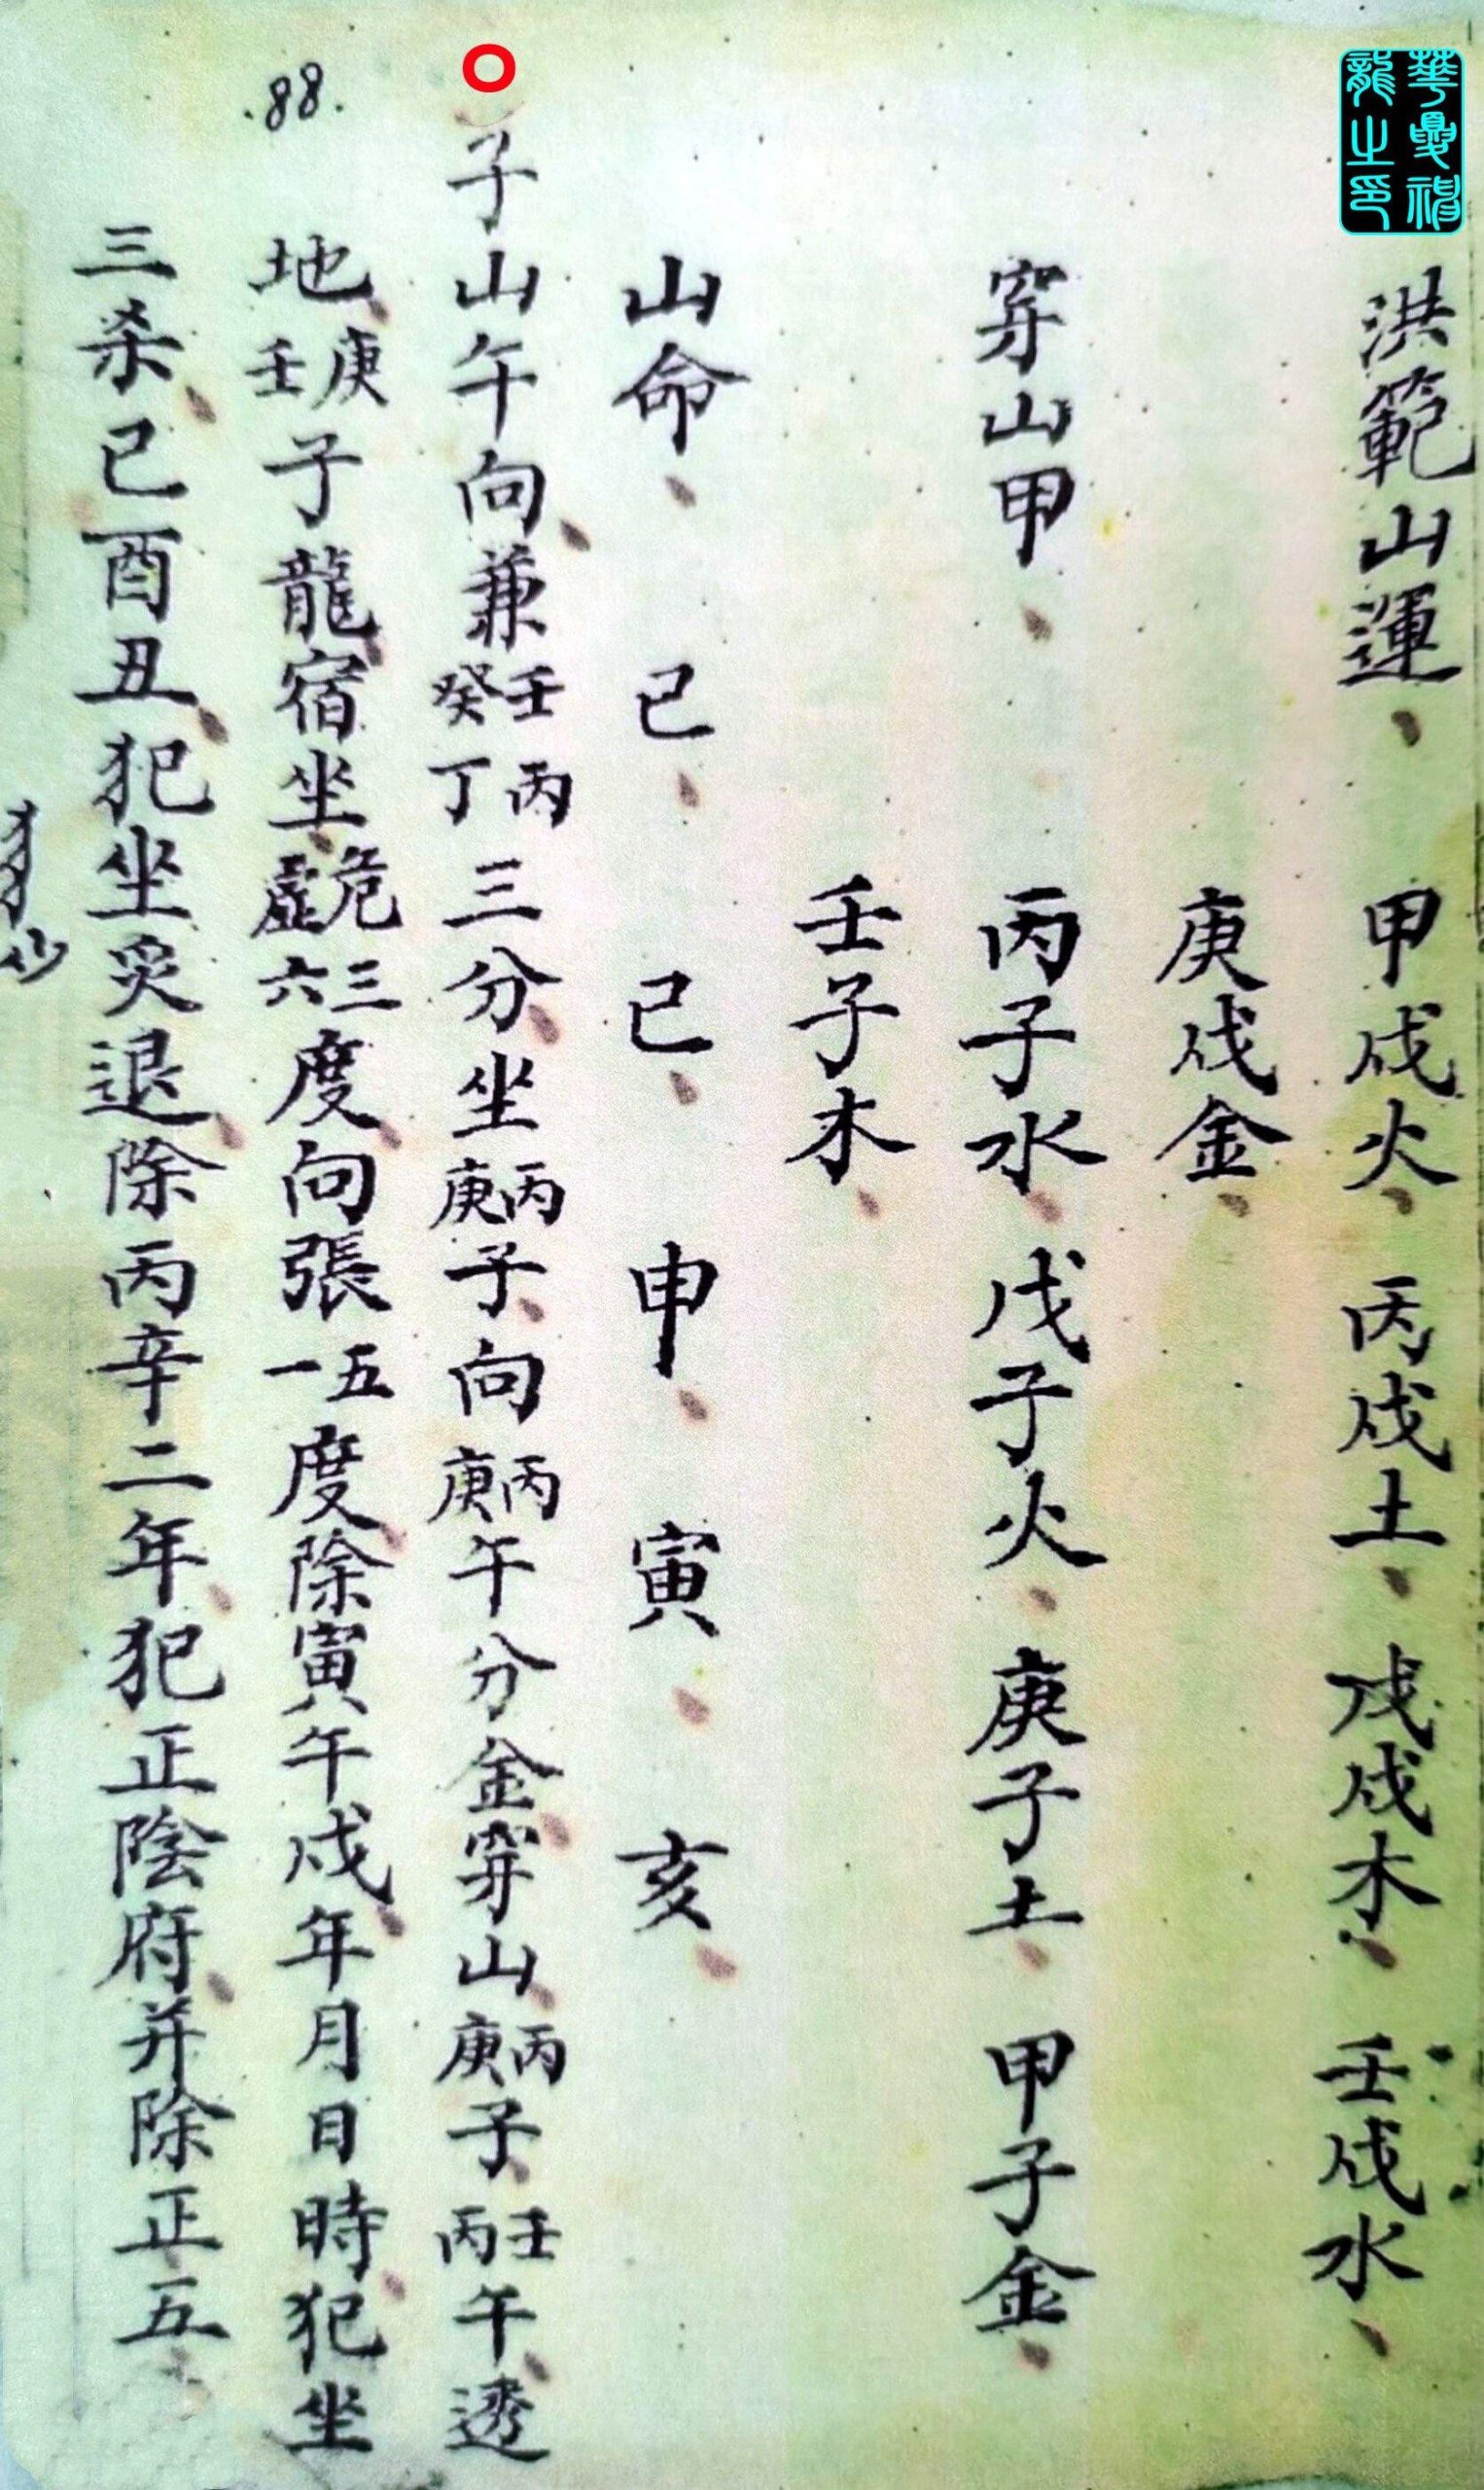 華夏神龍之印
洪範山運、甲戌火、丙戌土、戊戌木、壬戌水、
庚戌金、
穿山甲、丙子水、戊子火、庚子土、甲子金、
壬子木、
山命、己、己、申、寅、亥、
子山午向、兼壬丙癸丁三分、坐丙庚子、向丙庚午分金、穿山丙庚子、壬丙午、透
地、庚壬子龍、宿坐、危三虛六度、向張五一度、除寅午戌、年月日時、犯坐
三杀、巳酉丑、犯坐灾退、除丙辛二年、犯正陰府、并除正五、
88.